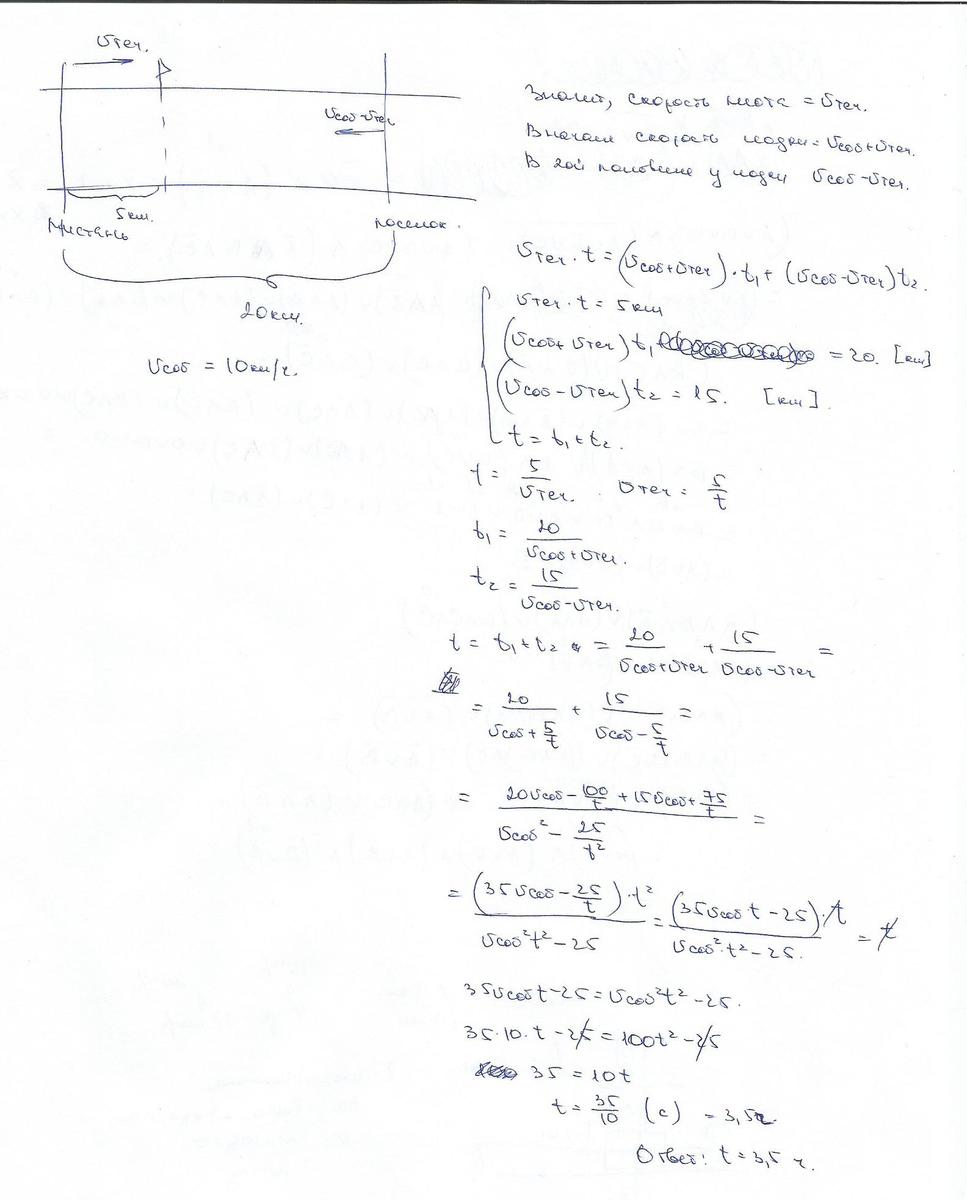 Vтеч.
Vсоб-Vтеч
5км.
Пристань
поселок.
20км.
Vсоб = 10км/ч.
Значит, скорость плота = Vтеч.
Вначале скорость лодки = Vсоб+Vтеч.
В 2ой половине у лодки Vсоб-Vтеч.
Vтеч · t = (Vсоб+Vтеч) · t₁ + (Vсоб-Vтеч) t₂.
Vтеч · t = 5км
(Vсоб + Vтеч) t₁ = 20. [км]
(Vсоб - Vтеч) t₂ = 15. [км].
t = t₁ + t₂.
t = 5/Vтеч. Vтеч = 5/t
t₁ = 20/(Vсоб + Vтеч.)
t₂ = 15/(Vсоб - Vтеч.)
t = t₁ + t₂ = 20/(Vсоб+Vтеч) + 15/(Vсоб-Vтеч) =
= 20/(Vсоб + 5/t) + 15/(Vсоб - 5/t) =
= (20Vсоб - 100/t + 15Vсоб + 75/t)/(Vсоб² - 25/t²) =
= (35Vсоб - 25/t) · t²/(Vсоб²t² - 25) = (35Vсоб t - 25) · t/(Vсоб² · t² - 25.) = t
35Vсоб t - 25 = Vсоб²t² - 25.
35·10·t - 25 = 100t² - 25
35 = 10t
t = 35/10 (с) = 3,5ч.
Ответ: t = 3,5 ч.